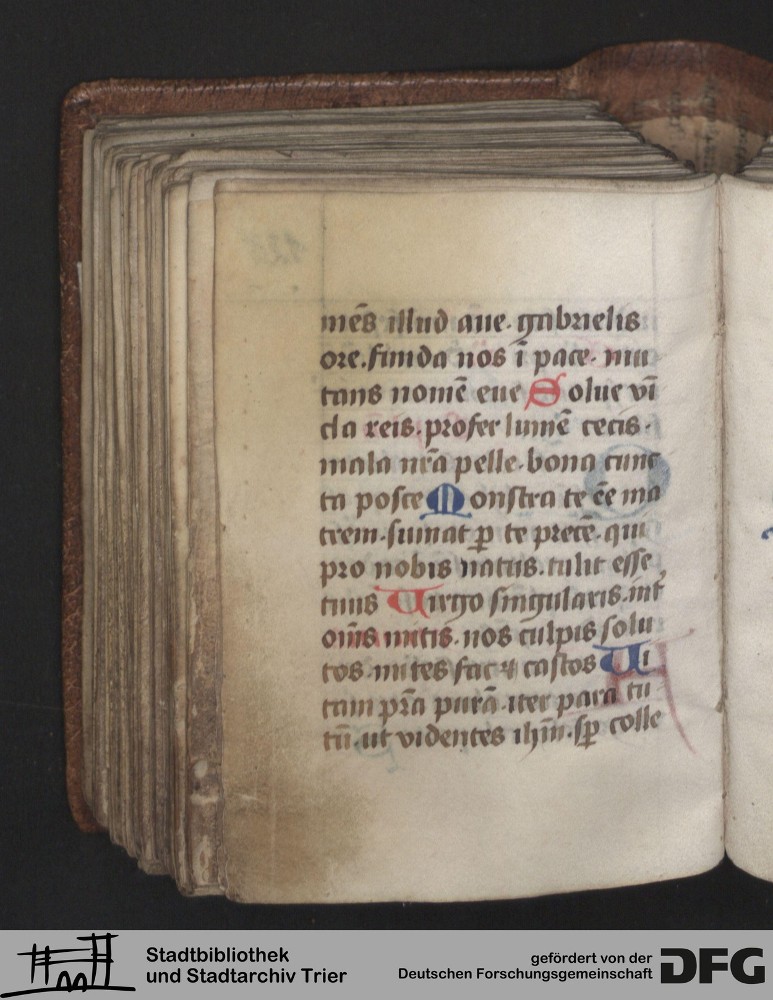 mēs illud aue· gabrielis
ore. funda nos ī pace· mu
tans nomē eue Solue vī
cla reis. profer lumē cecis·
mala nr̄a pelle· bona cunc
ta posce Monstra te ēe ma
trem. sumat ꝑ te precē· qui
pro nobis natus. tulit esse
tuus Uirgo singularis. int̄
om̄s mitis. nos culpis solu
tos. mites fac ⁊ castos Ui
tam pr̄a purā. iter para tu
tū. ut videntes ihm̄. sꝑ colle
Stadtbibliothek
und Stadtarchiv Trier
gefördert von der
Deutschen Forschungsgemeinschaft
DFG